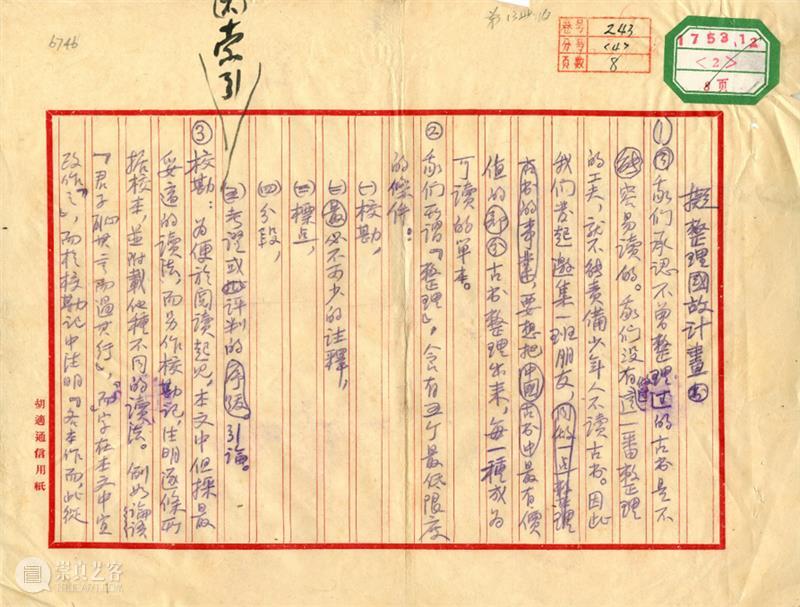 6746
(六)索引
卷号 243
分号 <4>
页数 8
1753.12
<2>
8 页
擬整理國故計畫
①我們承認不曾整理过的古書是不
容易讀的。我們没有這一番整理
的工夫，就不能責備少年人不讀古書。因此
我們發起邀集一班朋友，同做一点整理
古書的事業，要想把中國古書中最有價
值的部分古書整理出來，每一種成為
可讀的單本。
②我們所謂「整理」，含有五个最低限度
的條件：
(一)校勘，
(二)最必不可少的註釋，
(三)標点，
(四)分段，
(五)考證或評判的序跋引論。
③校勘：為便於閱讀起見，本文中但採最
妥適的讀法，而另作校勘記，注明逐條所
据校本，並附載他種不同的讀法。例如論語
「君子恥其言而過其行」，而字在本文中宜
改作「之」，而於校勘記中注明「各本作而，此從
胡適通信用紙
崇真艺客